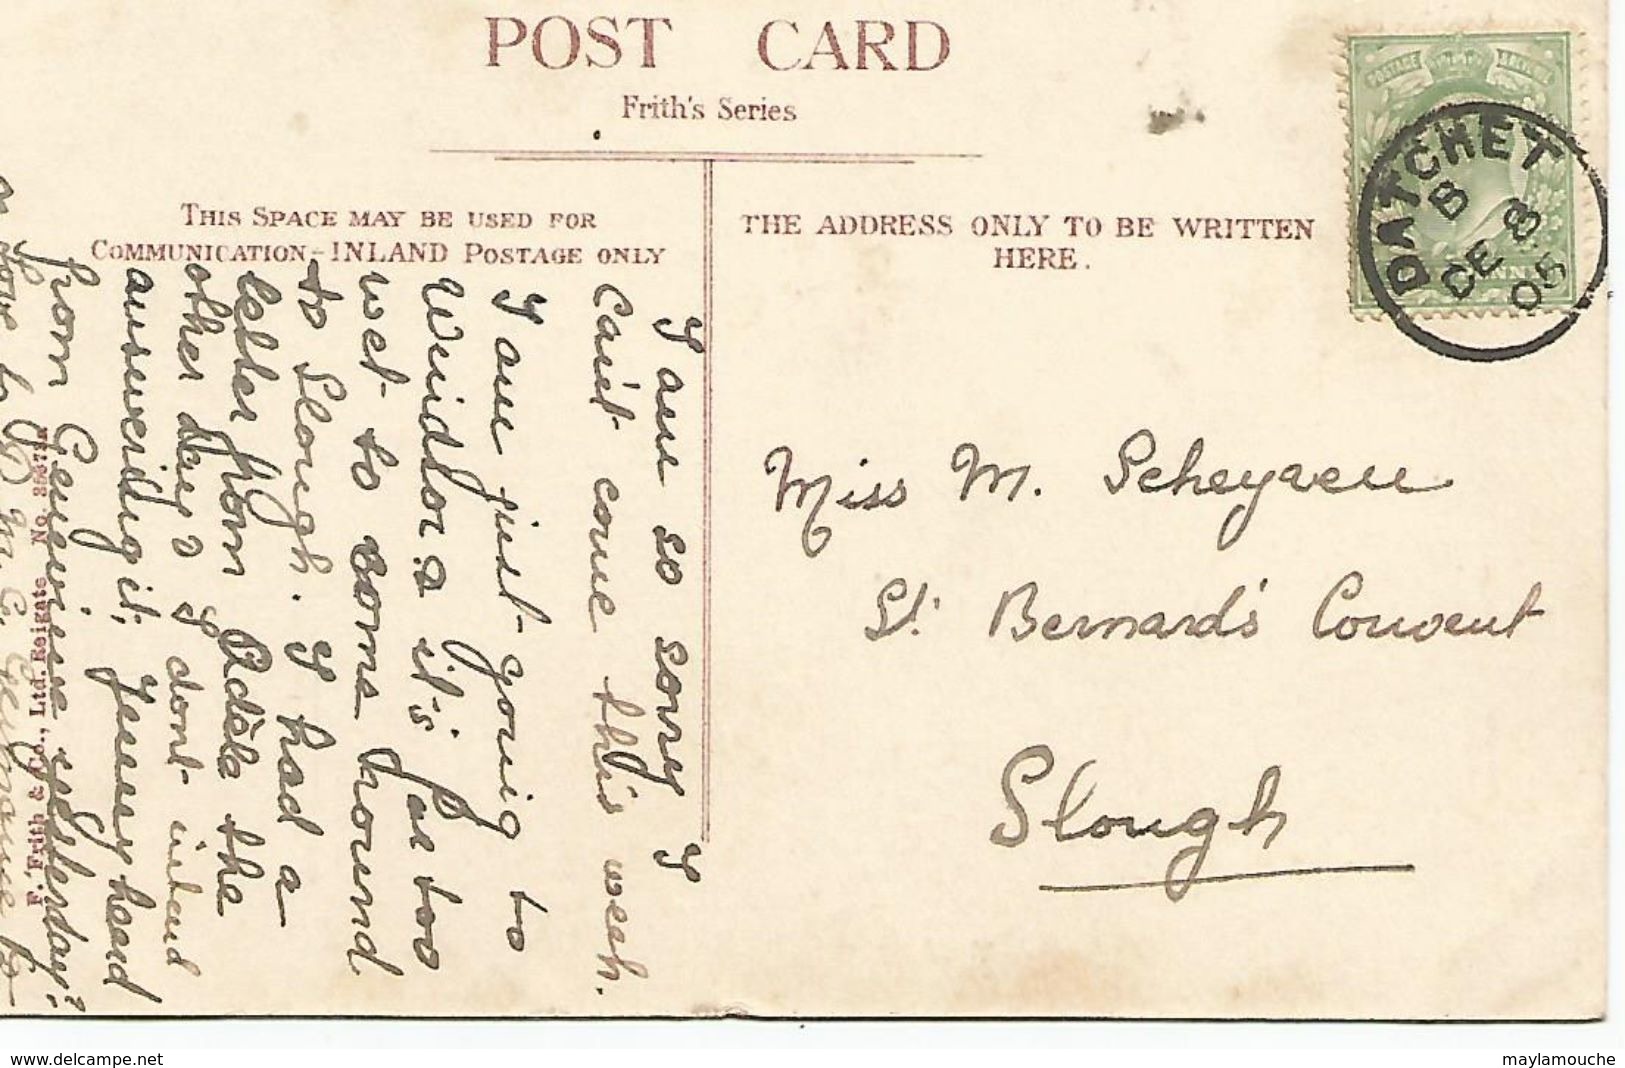 POST CARD
Frith's Series
THIS SPACE MAY BE USED FOR
COMMUNICATION-INLAND POSTAGE ONLY
THE ADDRESS ONLY TO BE WRITTEN
HERE.
POSTAGE
DATCHET
B
DE 8
05
I am so sorry I
can't come this week.
I am just going to
Windsor & it's far too
wet to come round
to Slough. I had a
letter from Adèle the
other day & I don't intend
answering it.
heard
from Geneviève yesterday?
love to
F. Frith & Co., Ltd. Reigate No.
Miss M. Scheyven
St. Bernard's Convent
Slough
www.delcampe.net
maylamouche